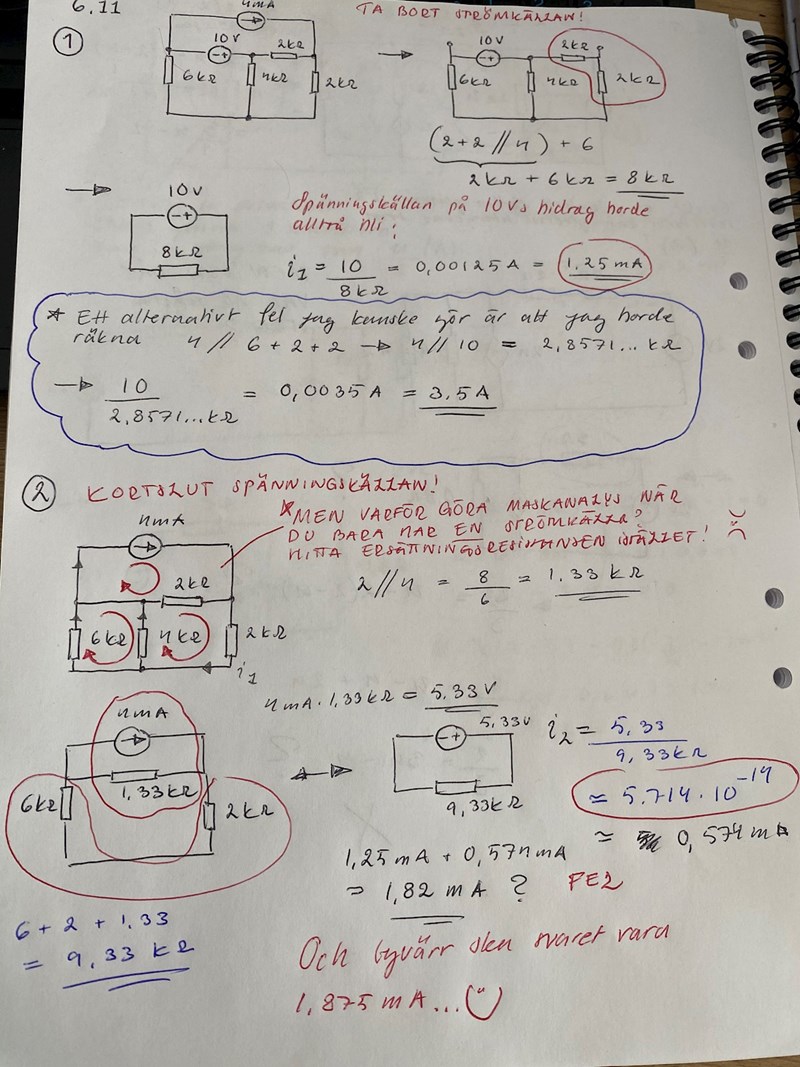 6.11
4mA
TA BORT STRÖMKÄLLAN!
1
10V
2kΩ
6kΩ
4kΩ
2kΩ
10V
2kΩ
6kΩ
4kΩ
2kΩ
(2+2 // 4) + 6
2kΩ + 6kΩ = 8kΩ
10V
8kΩ
Spänningskällan på 10Vs bidrag borde
alltså bli:
i1 = 10/8kΩ = 0,00125A = 1,25mA
* Ett alternativt fel jag kanske gör är att jag borde
räkna 4 // 6 + 2 + 2 → 4 // 10 = 2,8571... kΩ
→ 10/2,8571...kΩ = 0,0035A = 3,5A
2
KORTSLUT SPÄNNINGSKÄLLAN!
4mA
*MEN VARFÖR GÖRA MASKANALYS NÄR
DU BARA HAR EN STRÖMKÄLLA?
HITTA ERSÄTTNINGSRESISTANSEN ISTÄLLET! :(
2kΩ
6kΩ
4kΩ
2kΩ
i1
2//4 = 8/6 = 1.33 kΩ
4mA · 1,33kΩ = 5,33V
4mA
1,33kΩ
6kΩ
2kΩ
5,33V
9,33kΩ
i2 = 5,33/9,33kΩ
≈ 5.714 · 10⁻¹⁴
≈ 0,574 mA
1,25mA + 0,574mA
= 1,82 mA ? FEL
6 + 2 + 1.33
= 9,33 kΩ
Och tyvärr ska svaret vara
1,875 mA... :)